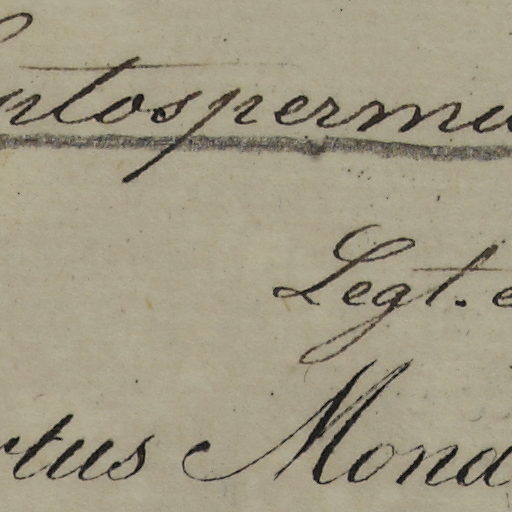 ntospermu
Legt. e
rtus Mona